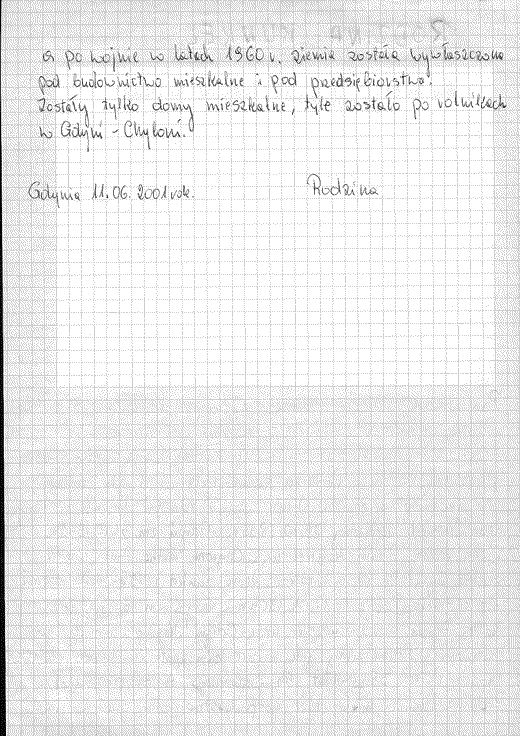 a po wojnie w latach 1960 r, ziemia została wywłaszczona
pod budownictwo mieszkalne i pod przedsiębiorstwo.
Zostały tylko domy mieszkalne, tyle zostało po rolnikach
w Gdyni - Chyloni.
Gdynia 11.06.2001 rok.
Rodzina